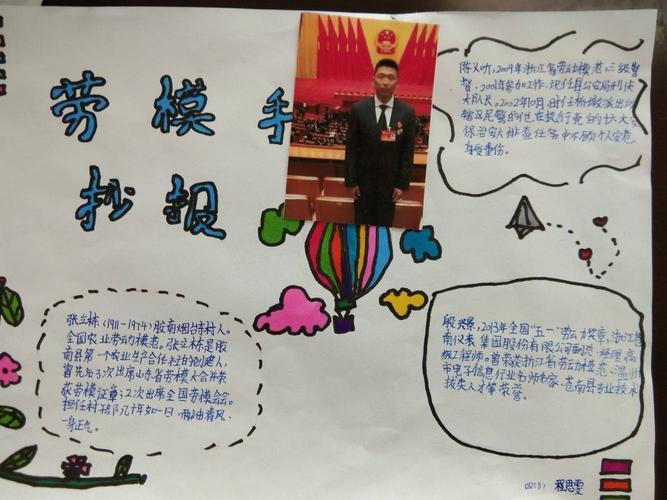 劳模手
抄报
陈义听,2009年浙江省劳动模范,三级警
督。2001年参加工作,现任县公安局刑侦
大队民。2002年10月,时任桥墩派出所
辖区民警的他在执行
保治安大排查任务中不顾个人安危,
身受重伤。
张立栋(1911-1974)胶南烟台东村人。
全国农业劳动模范。张立栋是胶
南县第一个农业生产合作社的创建人,
曾先后3次出席山东省劳模大会并获
获劳模证章;2次出席全国劳模会会。
担任村干部几十年如一日,两袖清风、
一身正气。
殷兴景,2013年全国"五一"劳动奖章,浙江苍
南仪表集团股份有限公司副总经理,高
级工程师。曾荣获浙江省劳动模范、温州
市电子信息行业名师名家、苍南县专业技术
拔尖人才等荣誉。
四(3) 程思雯